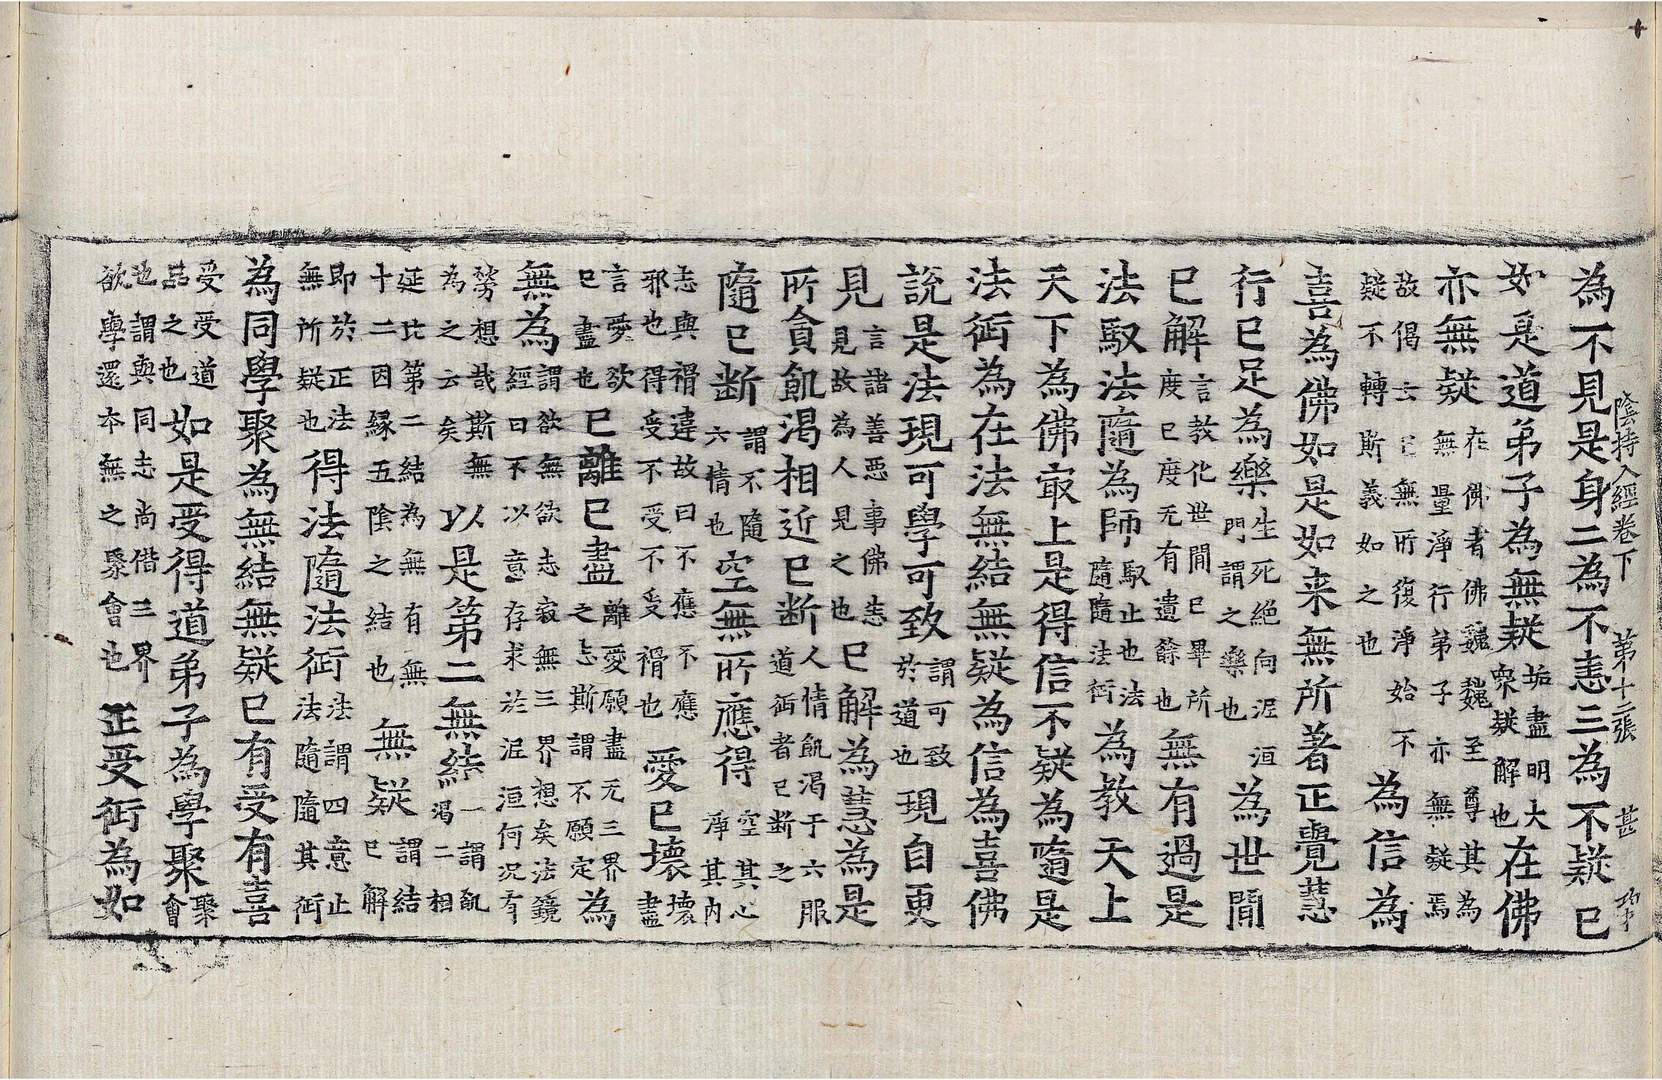 陰持入經卷下　第十二張　甚
為不見是身二為不恚三為不疑已
如是道弟子為無疑垢盡明大衆疑解也在佛
亦無疑在佛者佛巍巍至尊其為無量淨行弟子亦無疑焉
故偈云已無所復淨始不疑不轉斯義如之也為信為
喜為佛如是如来無所著正覺慧
行已足為樂生死絕向泥洹門謂之樂也為世間
已解言教化世間已畢所度已度无有遺餘也無有過是
法馭法隨為師馭止也法隨隨法術為教天上
天下為佛㝡上是得信不疑為隨是
法術為在法無結無疑為信為喜佛
說是法現可學可致謂可致於道也現自更
見言諸善惡事佛悉見見故為人見之也已解為慧為是
所貪飢渴相近已断人情飢渴于六服道術者已断之
隨已断謂不隨六情也空無所應得空其心淨其內
志與禍違故曰不應不應邪也得受不受不受禍也愛已壞壞盡
言愛欲已盡也已離已盡離愛願盡无三界之志斯謂不願定為
無為謂欲無欲志寂無三界想矣法鏡經曰不以意存求於泥洹何況有
勞想哉斯無為之云矣以是第二無結一謂飢渴二相
延比第二結為無有無十二因緣五陰之結也無疑謂結已解
即於正法無所疑也得法隨法術法謂四意止法隨隨其術
為同學聚為無結無疑已有受有喜
受受道品之也如是受得道弟子為學聚聚會
也謂與同志尚偕三界欲學還本無之聚會也正受術為如